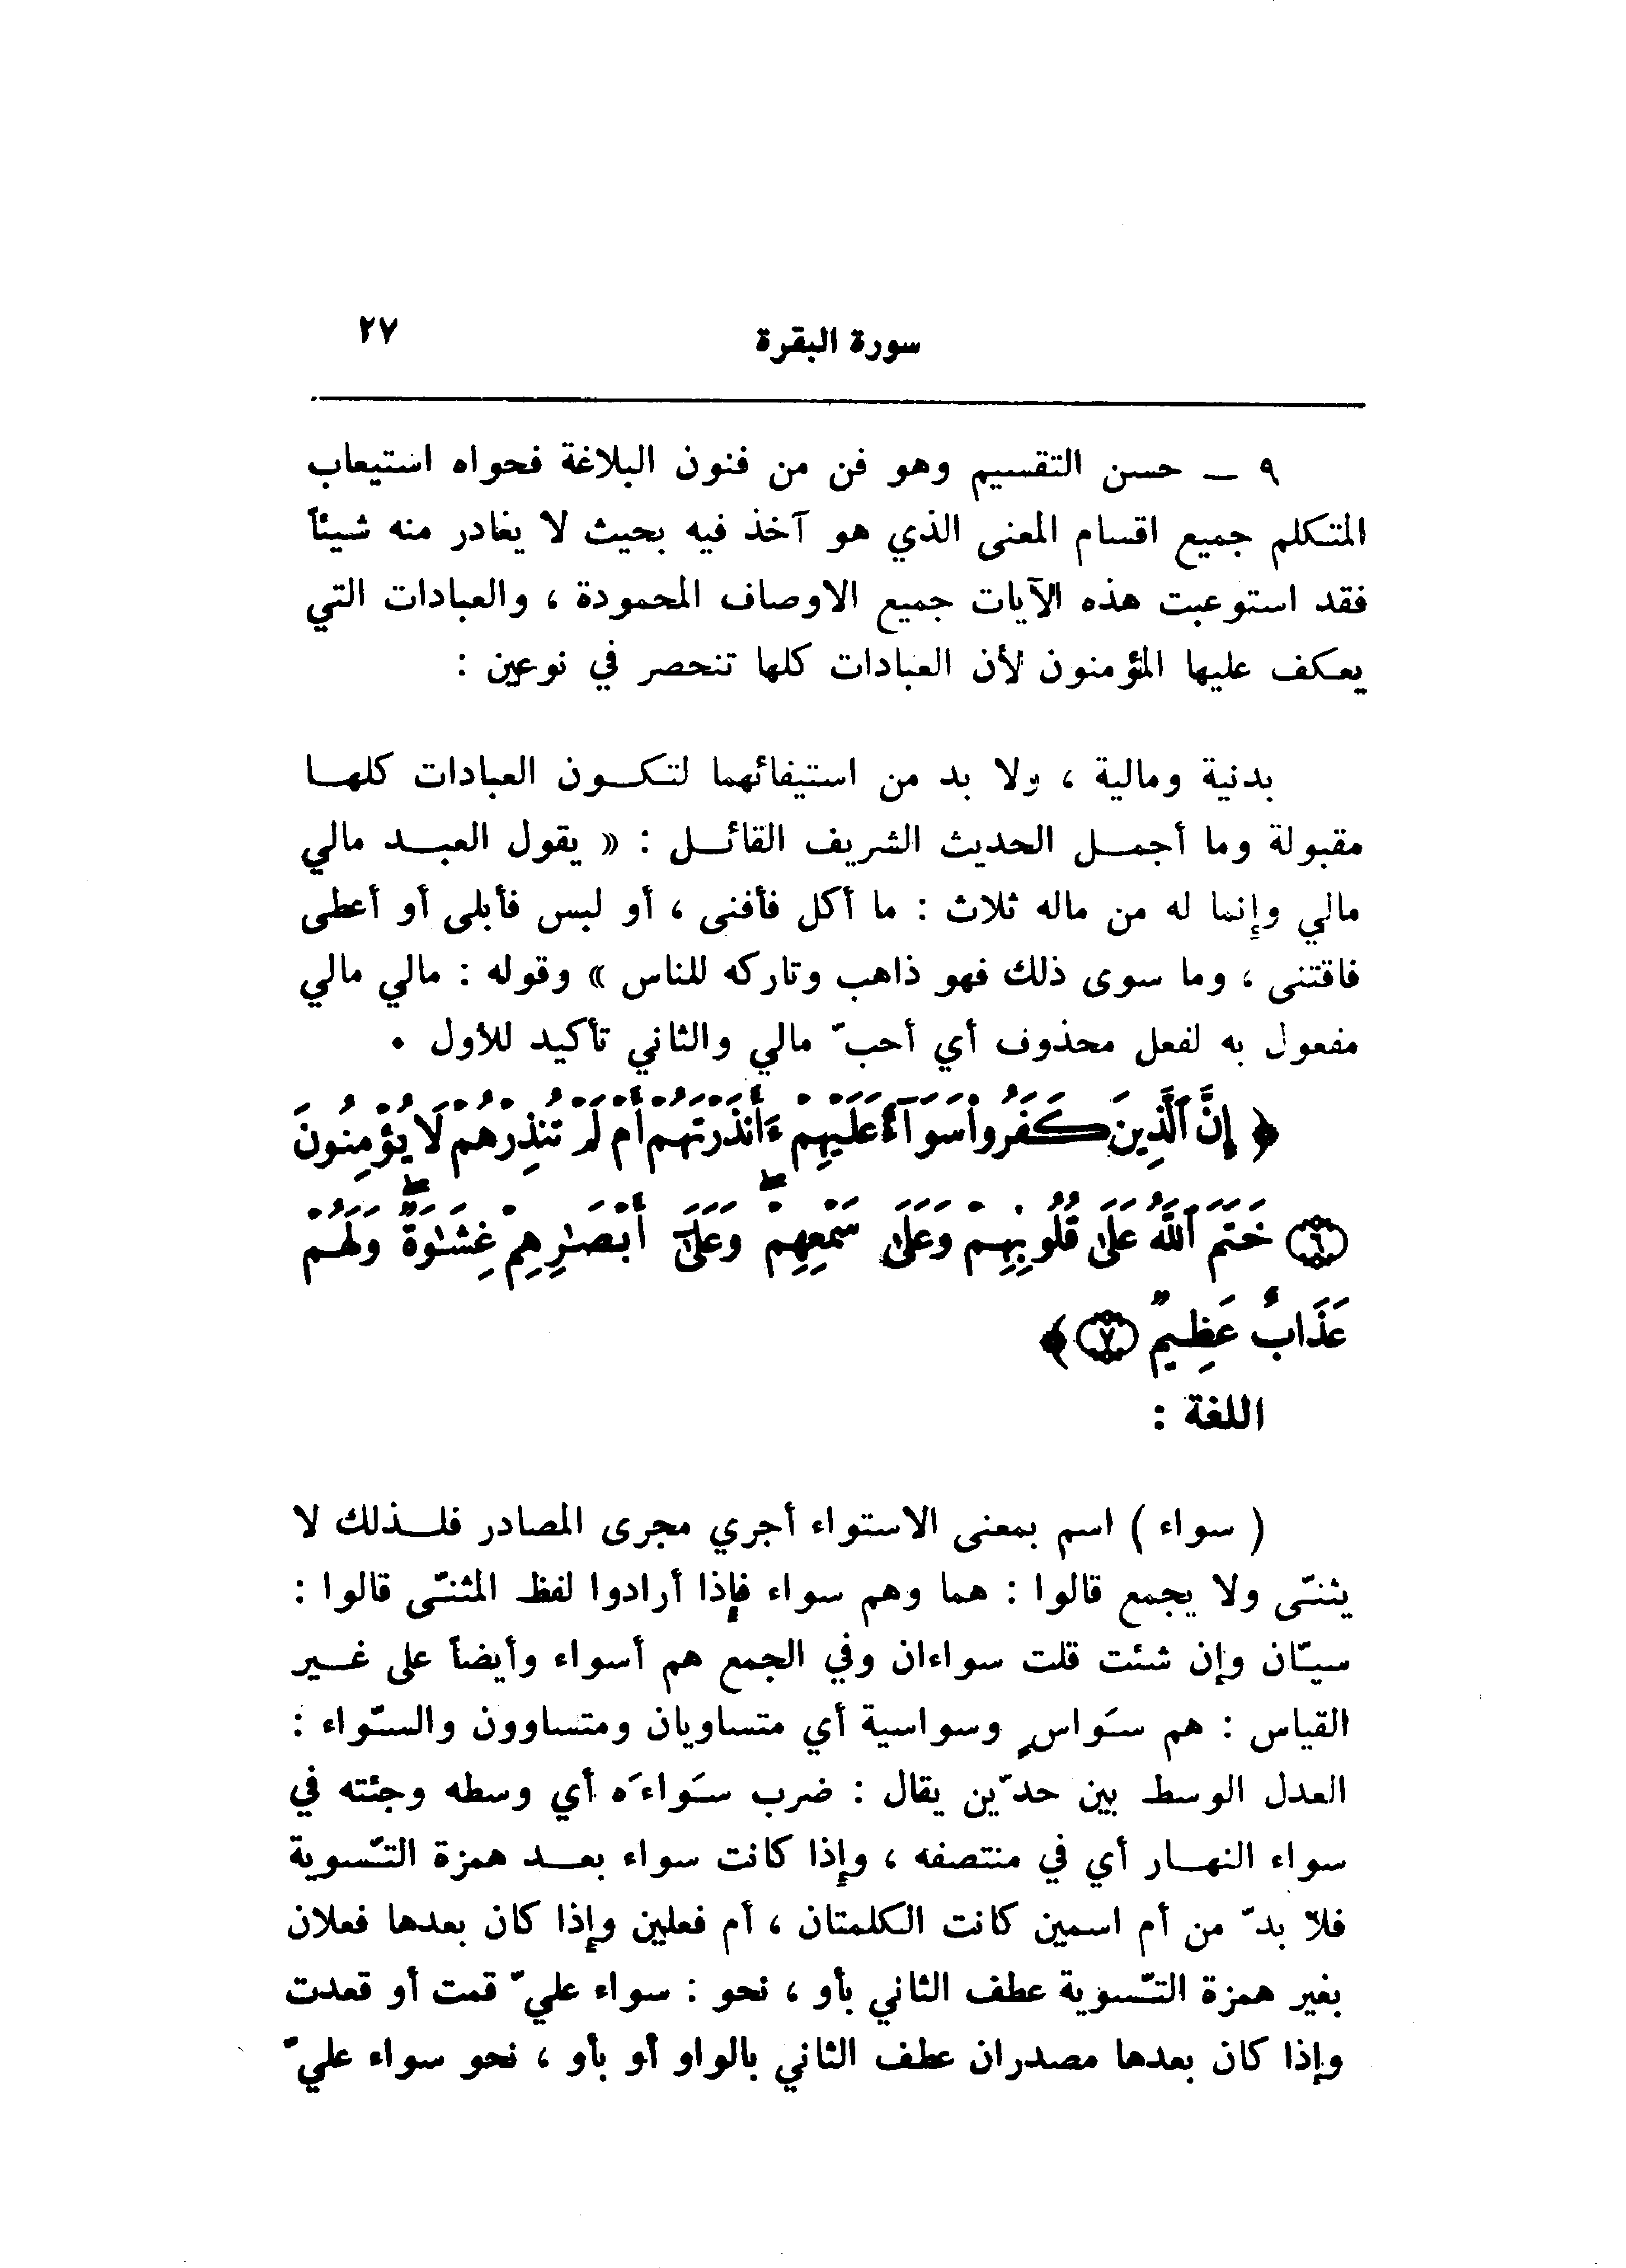 سورة البقرة ٢٧
٩ ــ حسن التقسيم وهو فن من فنون البلاغة فحواه استيعاب
المتكلم جميع اقسام المعنى الذي هو آخذ فيه بحيث لا يغادر منه شيئاً
فقد استوعبت هذه الآيات جميع الاوصاف المحمودة ، والعبادات التي
يعكف عليها المؤمنون لأن العبادات كلها تنحصر في نوعين :
بدنية ومالية ، ولا بد من استيفائهما لتكـون العبادات كلهـا
مقبولة وما أجمـل الحديث الشريف القائـل : « يقول العبـد مالي
مالي وإنما له من ماله ثلاث : ما أكل فأفنى ، أو لبس فأبلى أو أعطى
فاقتنى ، وما سوى ذلك فهو ذاهب وتاركه للناس » وقوله : مالي مالي
مفعول به لفعل محذوف أي أحبّ مالي والثاني تأكيد للأول ٠
﴿ إِنَّ ٱلَّذِينَ كَفَرُواْ سَوَآءٌ عَلَيْهِمْ ءَأَنذَرْتَهُمْ أَمْ لَمْ تُنذِرْهُمْ لَا يُؤْمِنُونَ
﴿٦﴾ خَتَمَ ٱللَّهُ عَلَىٰ قُلُوبِهِمْ وَعَلَىٰ سَمْعِهِمْۖ وَعَلَىٰٓ أَبْصَٰرِهِمْ غِشَٰوَةٌۖ وَلَهُمْ
عَذَابٌ عَظِيمٌ ﴿٧﴾ ﴾
اللغة :
( سواء ) اسم بمعنى الاستواء أجري مجرى المصادر فلـذلك لا
يثنّى ولا يجمع قالوا : هما وهم سواء فإذا أرادوا لفظ المثنّى قالوا :
سيّان وإن شئت قلت سواءان وفي الجمع هم أسواء وأيضاً على غـير
القياس : هم سَواسٍ وسواسية أي متساويان ومتساوون والسّواء :
العدل الوسط بين حدّين يقال : ضرب سَواءَه أي وسطه وجئته في
سواء النهـار أي في منتصفه ، وإذا كانت سواء بعـد همزة التّسوية
فلا بدّ من أم اسمين كانت الكلمتان ، أم فعلين وإذا كان بعدها فعلان
بغير همزة التّسوية عطف الثاني بأو ، نحو : سواء عليّ قمت أو قعدت
وإذا كان بعدها مصدران عطف الثاني بالواو أو بأو ، نحو سواء عليّ